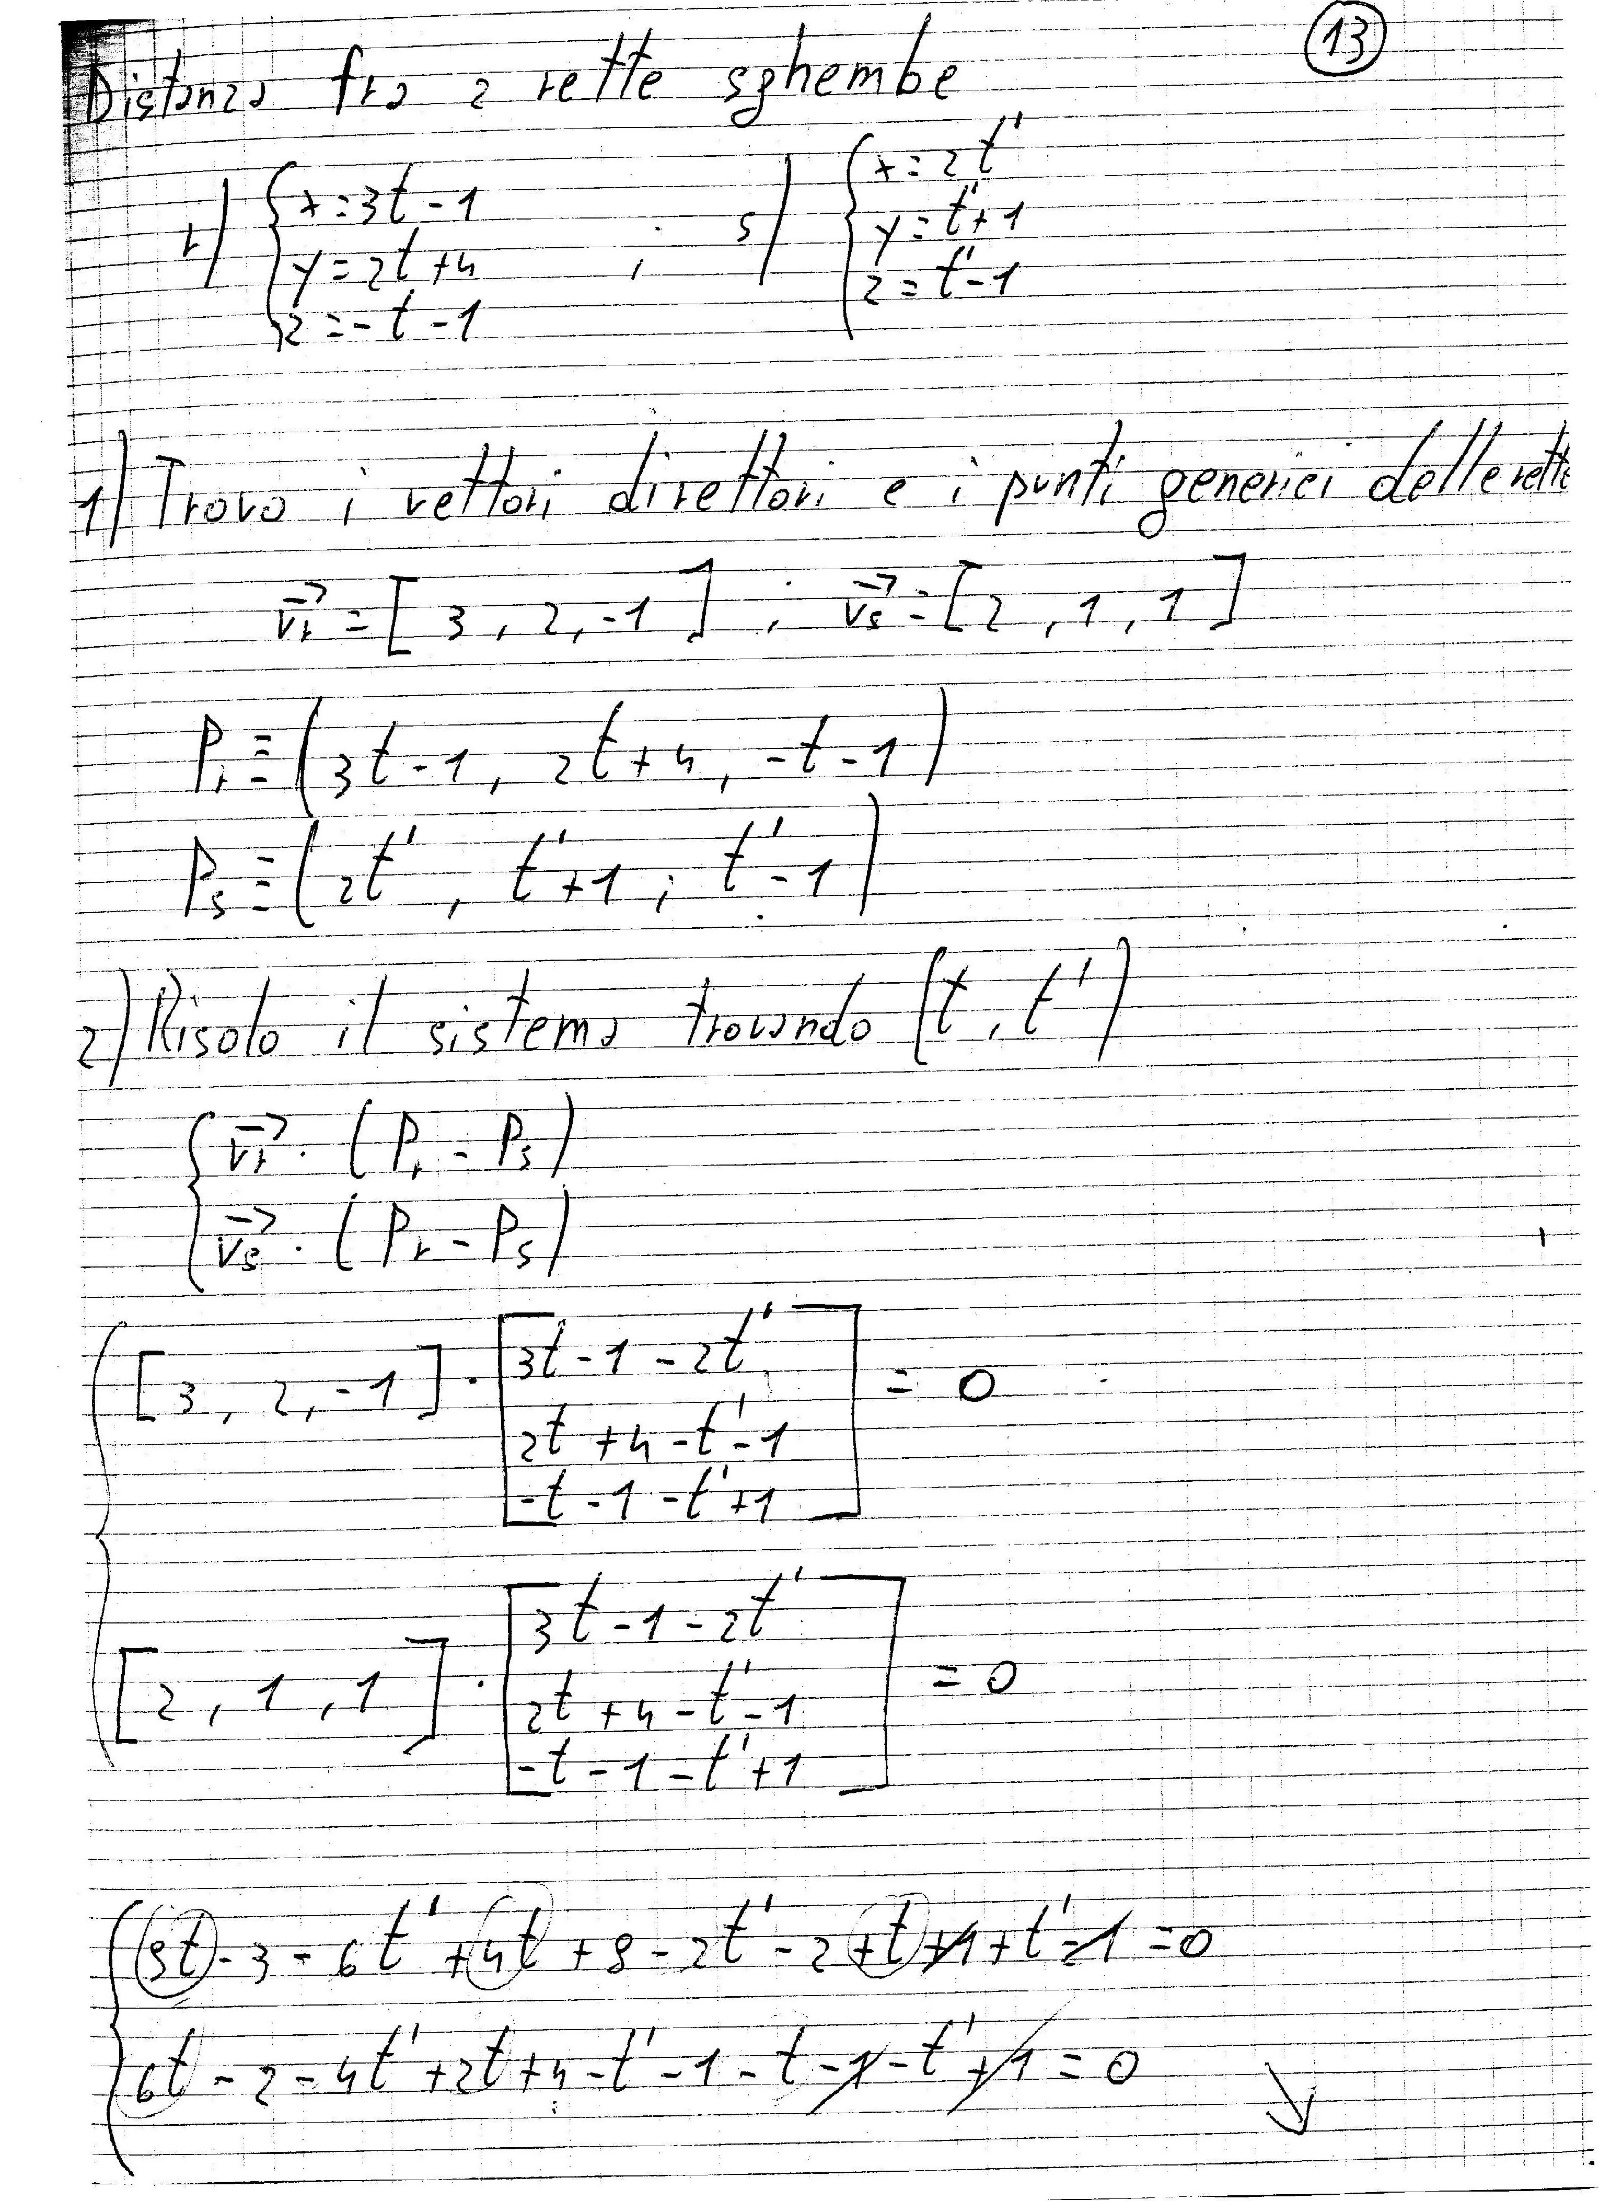 13
Distanza fra 2 rette sghembe
r) { x=3t-1 ; s) { x=2t'
y=2t+4 y=t'+1
z=-t-1 z=t'-1
1) Trovo i vettori direttori e i punti generici delle rette
vr→ = [3, 2, -1] ; vs→ = [2, 1, 1]
Pr ≡ (3t-1, 2t+4, -t-1)
Ps ≡ (2t', t'+1; t'-1)
2) Risolo il sistema trovando (t, t')
{ vr→ · (Pr - Ps)
vs→ · (Pr - Ps)
{ [3, 2, -1] · [3t-1-2t'
2t+4-t'-1
-t-1-t'+1] = 0
[2, 1, 1] · [3t-1-2t'
2t+4-t'-1
-t-1-t'+1] = 0
{ 9t-3-6t'+4t+8-2t'-2+t+1+t'-1=0
6t-2-4t'+2t+4-t'-1-t-1-t'+1=0 ↘